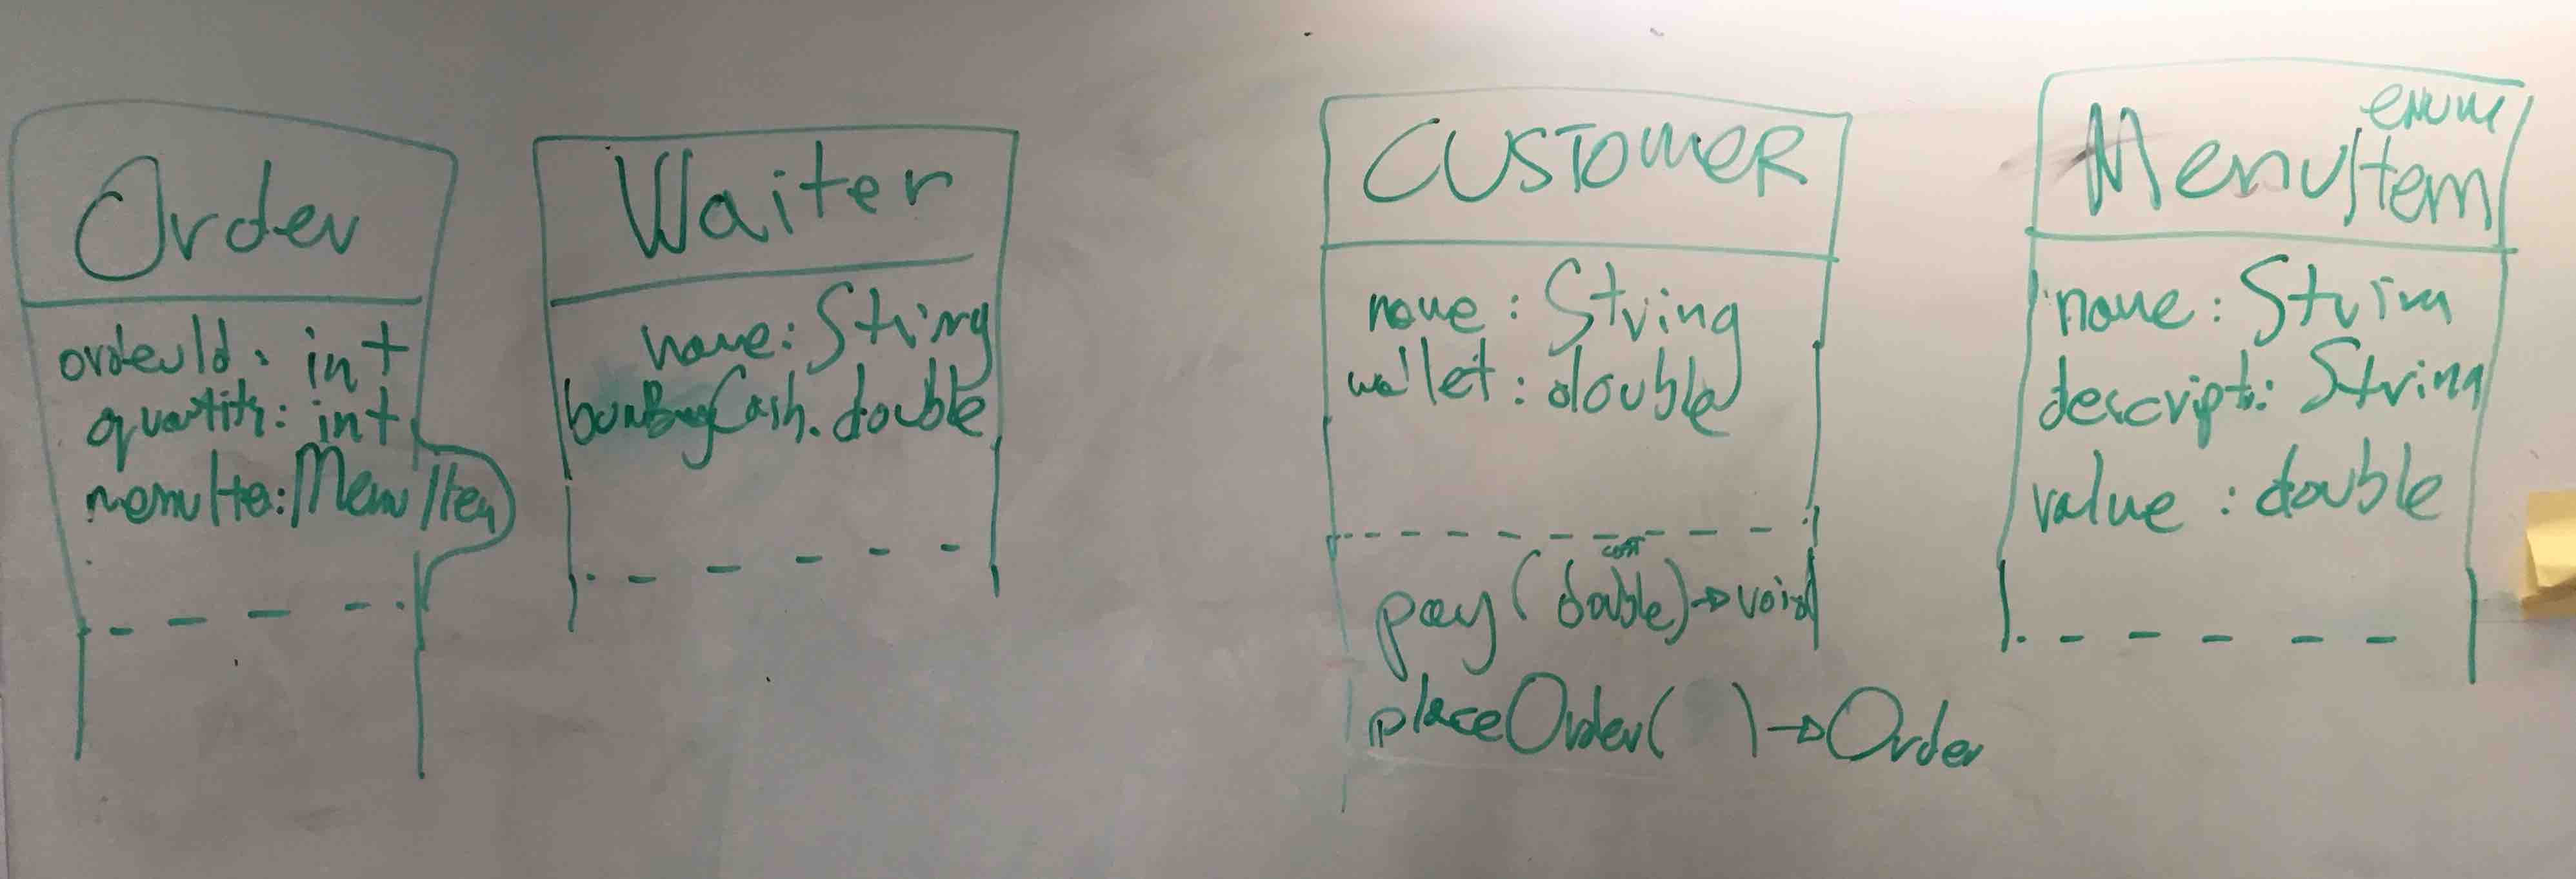 Order
orderId: int
quantity: int
menuIte: MenuItem
Waiter
name: String
bumBagCash. double
CUSTOMER
name: String
wallet: double
cost
pay(double)→void
placeOrder( )→Order
enum
MenuItem
name: String
descript: String
value: double